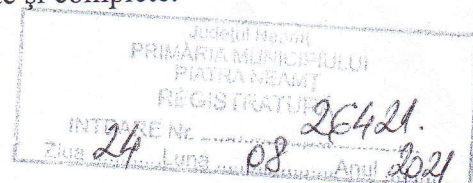 și complete.
Județul Neamț
PRIMĂRIA MUNICIPIULUI
PIATRA NEAMȚ
REGISTRATURĂ
INTRARE Nr. 26421.
Ziua 24 Luna 08 Anul 2021